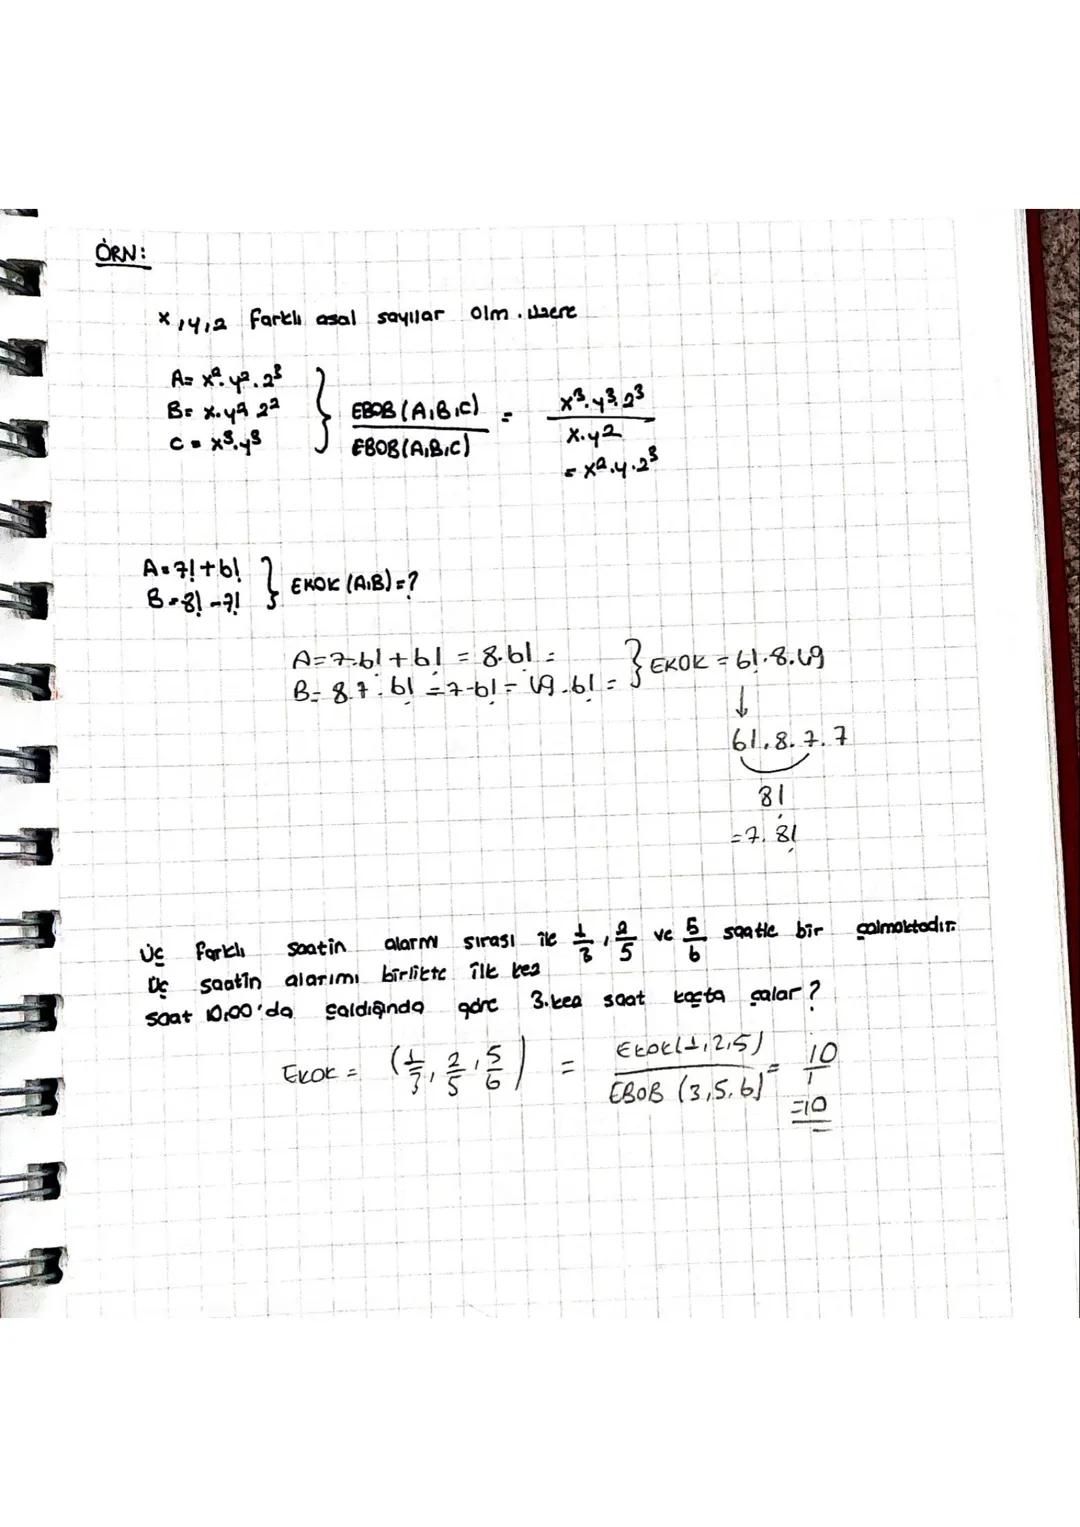 ÖRN:
x,y,z farklı asal sayılar olm. üzere
A= x². y². z³
B= x.y² z²
C = x³.y³
} EBOB(A,B,C) / EBOB(A,B,C) = x³.y³.z³ / x.y²
= x².y.z³
A=7!+6!
B=8!-7!
} EKOK (A,B)=?
A=7.6!+6! = 8.6! =
B= 8.7.6! = 7-6! = 49.6! =
} EKOK = 6!.8.49
↓
6!.8.7.7
8!
=7.8!
Üç farklı saatin alarmı sırası ile 1/3, 2/5 ve 5/6 saatle bir çalmaktadır.
Üç saatin alarımı birlikte ilk kez
saat 10.00'da çaldığında göre 3.kez saat kaçta çalar?
EKOK = (1/3, 2/5, 5/6) = EKOK(1,2,5) / EBOB (3,5,6) = 10/1
=10